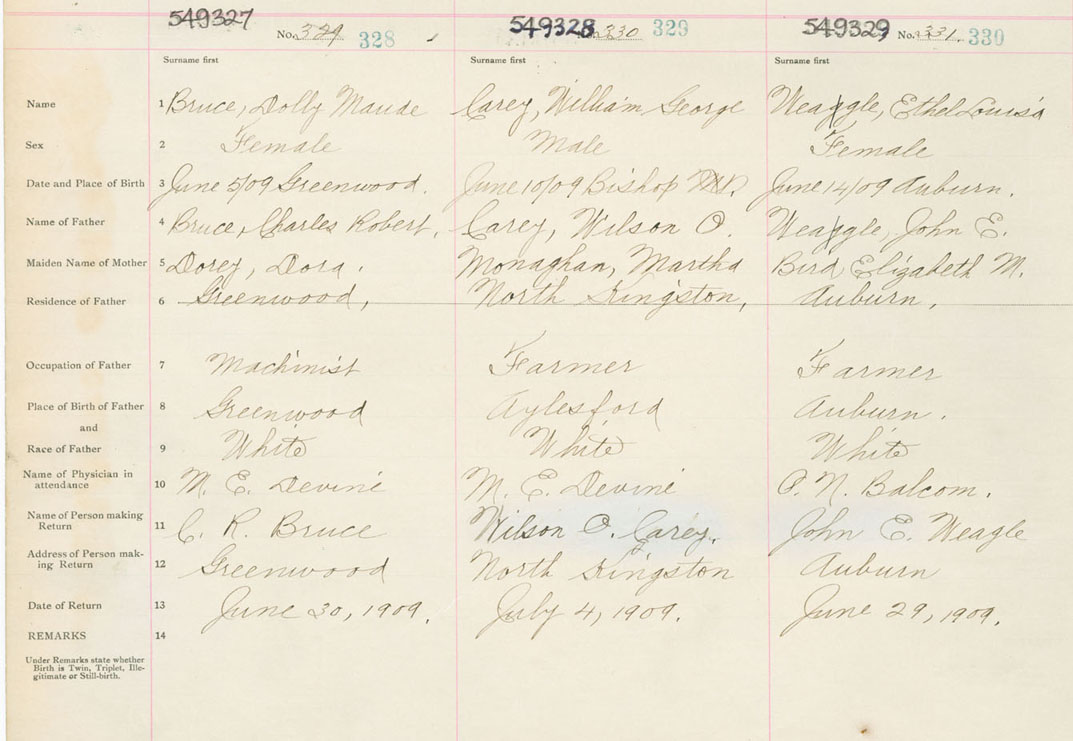 549327 549328 549329
No. 329 328 No. 330 329 No. 331 330
Surname first Surname first Surname first
Name 1 Bruce, Dolly Maude Carey, William George Weagle, Ethel Louisa
Sex 2 Female Male Female
Date and Place of Birth 3 June 5/09 Greenwood. June 10/09 Bishop June 14/09 Auburn.
Name of Father 4 Bruce, Charles Robert, Carey, Wilson O. Weagle, John E.
Maiden Name of Mother 5 Dorey, Dora. Monaghan, Martha Bird, Elizabeth M.
Residence of Father 6 Greenwood, North Kingston, Auburn,
Occupation of Father 7 Machinist Farmer Farmer
Place of Birth of Father 8 Greenwood Aylesford Auburn.
and
Race of Father 9 White White White
Name of Physician in
attendance 10 M. E. Devine M. E. Devine O. N. Balcom.
Name of Person making
Return 11 C. R. Bruce Wilson O. Carey. John E. Weagle
Address of Person mak-
ing Return 12 Greenwood North Kingston Auburn
Date of Return 13 June 30, 1909. July 4, 1909. June 29, 1909.
REMARKS 14
Under Remarks state whether
Birth is Twin, Triplet, Ille-
gitimate or Still-birth.